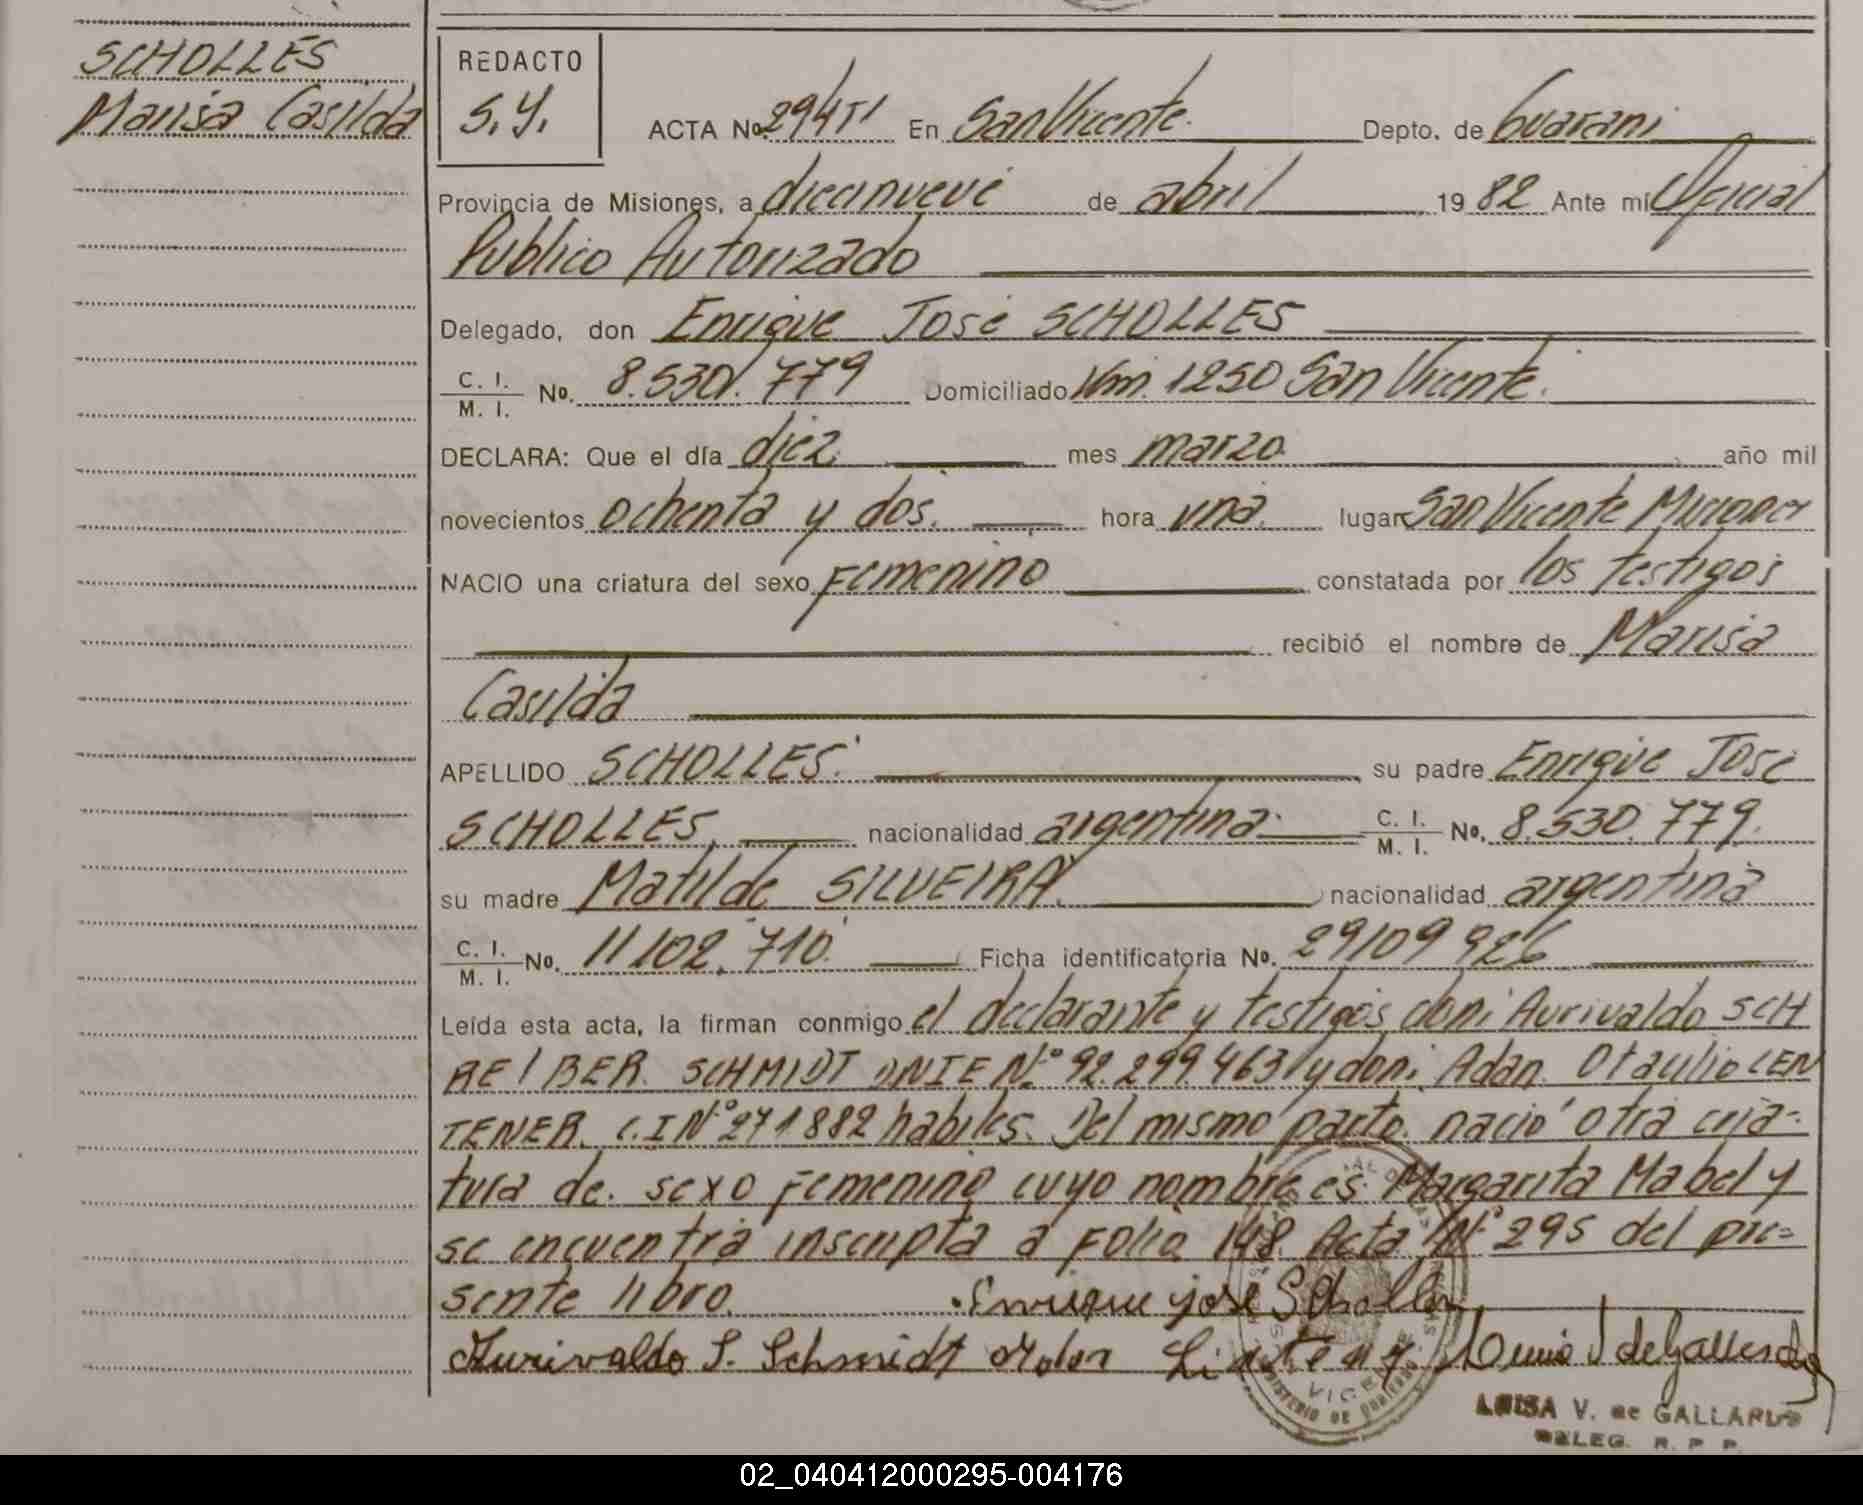 SCHOLLES
Marisa Casilda
REDACTO
S.Y.
ACTA No. 294 En San Vicente. Depto. de Guarani
Provincia de Misiones, a diecinueve de abril 1982 Ante mí Oficial
Publico Autorizado
Delegado, don Enrique José SCHOLLES
C. I. / M. I. No. 8.530.779 Domiciliado Km. 1250 San Vicente.
DECLARA: Que el día diez. mes marzo. año mil
novecientos ochenta y dos. hora una. lugar San Vicente Misiones
NACIO una criatura del sexo Femenino constatada por los testigos
recibió el nombre de Marisa
Casilda
APELLIDO SCHOLLES. su padre Enrique José
SCHOLLES. nacionalidad argentina. C. I. / M. I. No. 8.530.779.
su madre Matilde SILVEIRA. nacionalidad argentina
C. I. / M. I. No. 11.102.710. Ficha identificatoria No. 29109926
Leída esta acta, la firman conmigo el declarante y testigos, don: Aurivaldo SCH
REIBER SCHMIDT DNIE Nº 92.299.463 y don: Adan Otaulio LEN
TENER. C.I Nº 271882 habiles. Del mismo parto. nació otra cria-
tura de. sexo Femenino cuyo nombre es Margarita Mabel y
se encuentra inscripta a Folio 148. Acta Nº 295 del pre=
sente libro. Enrique José Scholles
Aurivaldo S. Schmidt
LUISA V. de GALLARDO
DELEG. R. P. P.
02_040412000295-004176